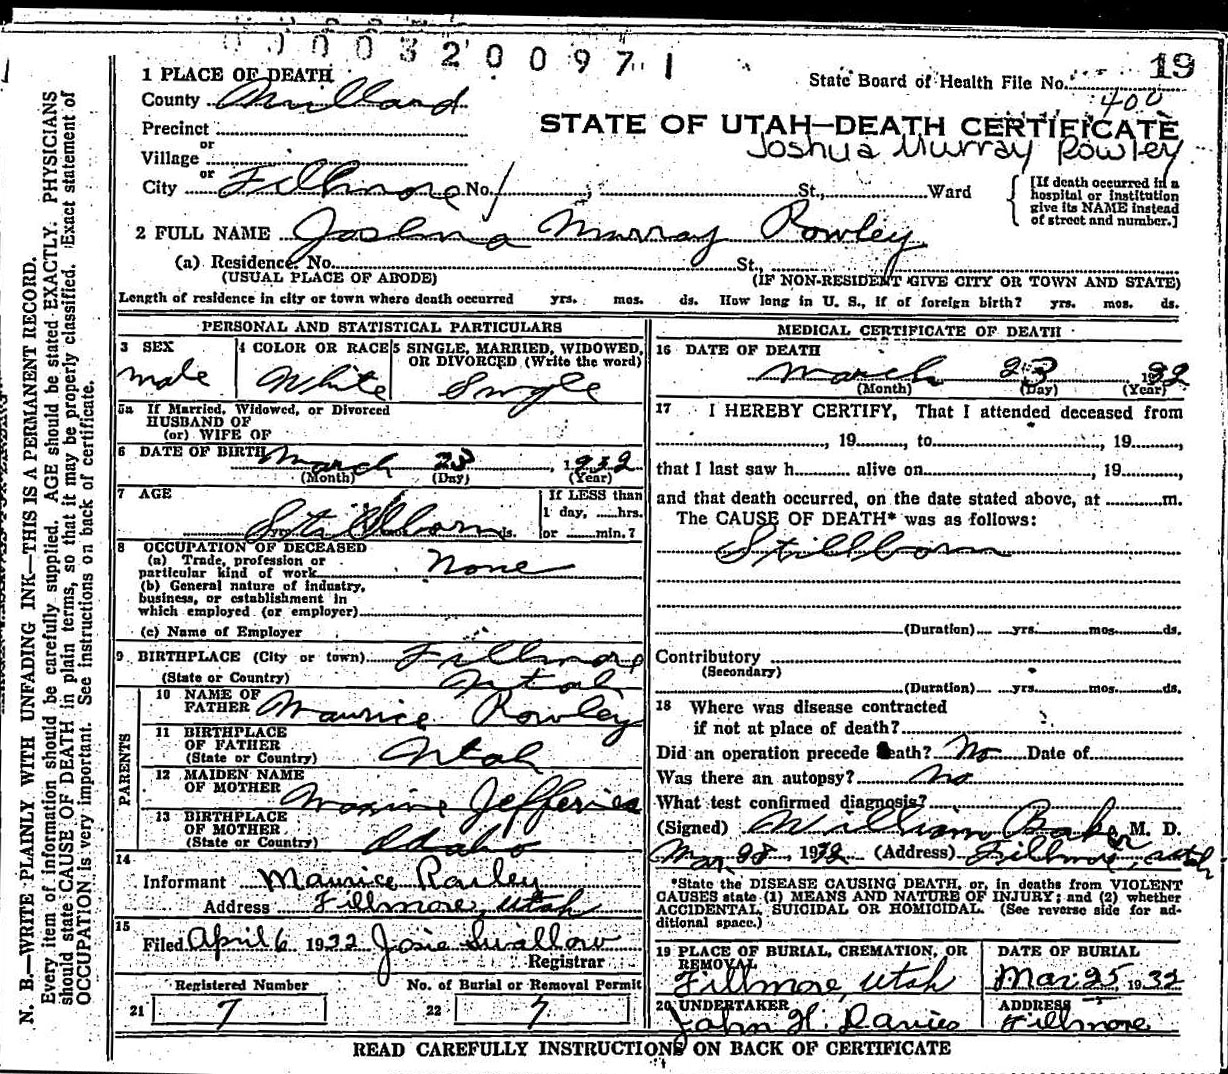 0000320097 1
19
1 PLACE OF DEATH
State Board of Health File No.
400
County Millard
STATE OF UTAH—DEATH CERTIFICATE
Precinct
Joshua Murray Rowley
or
Village
or
City Fillmore No. St., Ward
[If death occurred in a hospital or institution give its NAME instead of street and number.]
2 FULL NAME Joshua Murray Rowley
(a) Residence, No. St.
(USUAL PLACE OF ABODE) (IF NON-RESIDENT GIVE CITY OR TOWN AND STATE)
Length of residence in city or town where death occurred yrs. mos. ds. How long in U. S., if of foreign birth? yrs. mos. ds.
PERSONAL AND STATISTICAL PARTICULARS
3 SEX
male
4 COLOR OR RACE
White
5 SINGLE, MARRIED, WIDOWED, OR DIVORCED (Write the word)
Single
5a If Married, Widowed, or Divorced
HUSBAND OF
(or) WIFE OF
6 DATE OF BIRTH March 23, 1932
(Month) (Day) (Year)
7 AGE
Stillborn
yrs. mos. ds.
If LESS than
1 day, hrs.
or min.?
8 OCCUPATION OF DECEASED
(a) Trade, profession or
particular kind of work None
(b) General nature of industry,
business, or establishment in
which employed (or employer)
(c) Name of Employer
9 BIRTHPLACE (City or town) Fillmore
(State or Country) Utah
PARENTS
10 NAME OF
FATHER Maurice Rowley
11 BIRTHPLACE
OF FATHER
(State or Country) Utah
12 MAIDEN NAME
OF MOTHER Maxine Jefferies
13 BIRTHPLACE
OF MOTHER
(State or Country) Idaho
14
Informant Maurice Rowley
Address Fillmore, Utah
15
Filed April 6 1932 Josie Swallow
Registrar
Registered Number
21 7
No. of Burial or Removal Permit
22 7
MEDICAL CERTIFICATE OF DEATH
16 DATE OF DEATH
March 23 1932
(Month) (Day) (Year)
17 I HEREBY CERTIFY, That I attended deceased from
, 19 , to , 19 ,
that I last saw h alive on , 19 ,
and that death occurred, on the date stated above, at m.
The CAUSE OF DEATH* was as follows:
Stillborn
(Duration) yrs. mos. ds.
Contributory
(Secondary)
(Duration) yrs. mos. ds.
18 Where was disease contracted
if not at place of death?
Did an operation precede death? No Date of
Was there an autopsy? No
What test confirmed diagnosis?
(Signed) William Baker M. D.
Mar 28, 1932 (Address) Fillmore, Utah
*State the DISEASE CAUSING DEATH, or, in deaths from VIOLENT
CAUSES state (1) MEANS AND NATURE OF INJURY; and (2) whether
ACCIDENTAL, SUICIDAL OR HOMICIDAL. (See reverse side for ad-
ditional space.)
19 PLACE OF BURIAL, CREMATION, OR
REMOVAL
Fillmore, Utah
DATE OF BURIAL
Mar. 25 1932
20 UNDERTAKER
John H. Davies
ADDRESS
Fillmore
READ CAREFULLY INSTRUCTIONS ON BACK OF CERTIFICATE
N. B.—WRITE PLAINLY WITH UNFADING INK—THIS IS A PERMANENT RECORD.
Every item of information should be carefully supplied. AGE should be stated EXACTLY. PHYSICIANS
should state CAUSE OF DEATH in plain terms, so that it may be properly classified. Exact statement of
OCCUPATION is very important. See instructions on back of certificate.